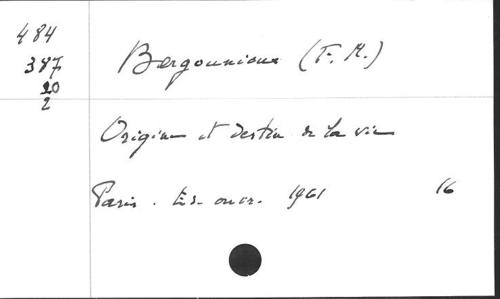 484
387
20
2
Bergounioux (F. M.)
Origine et destin de la vie
Paris. Ed. ouvr. 1961 16